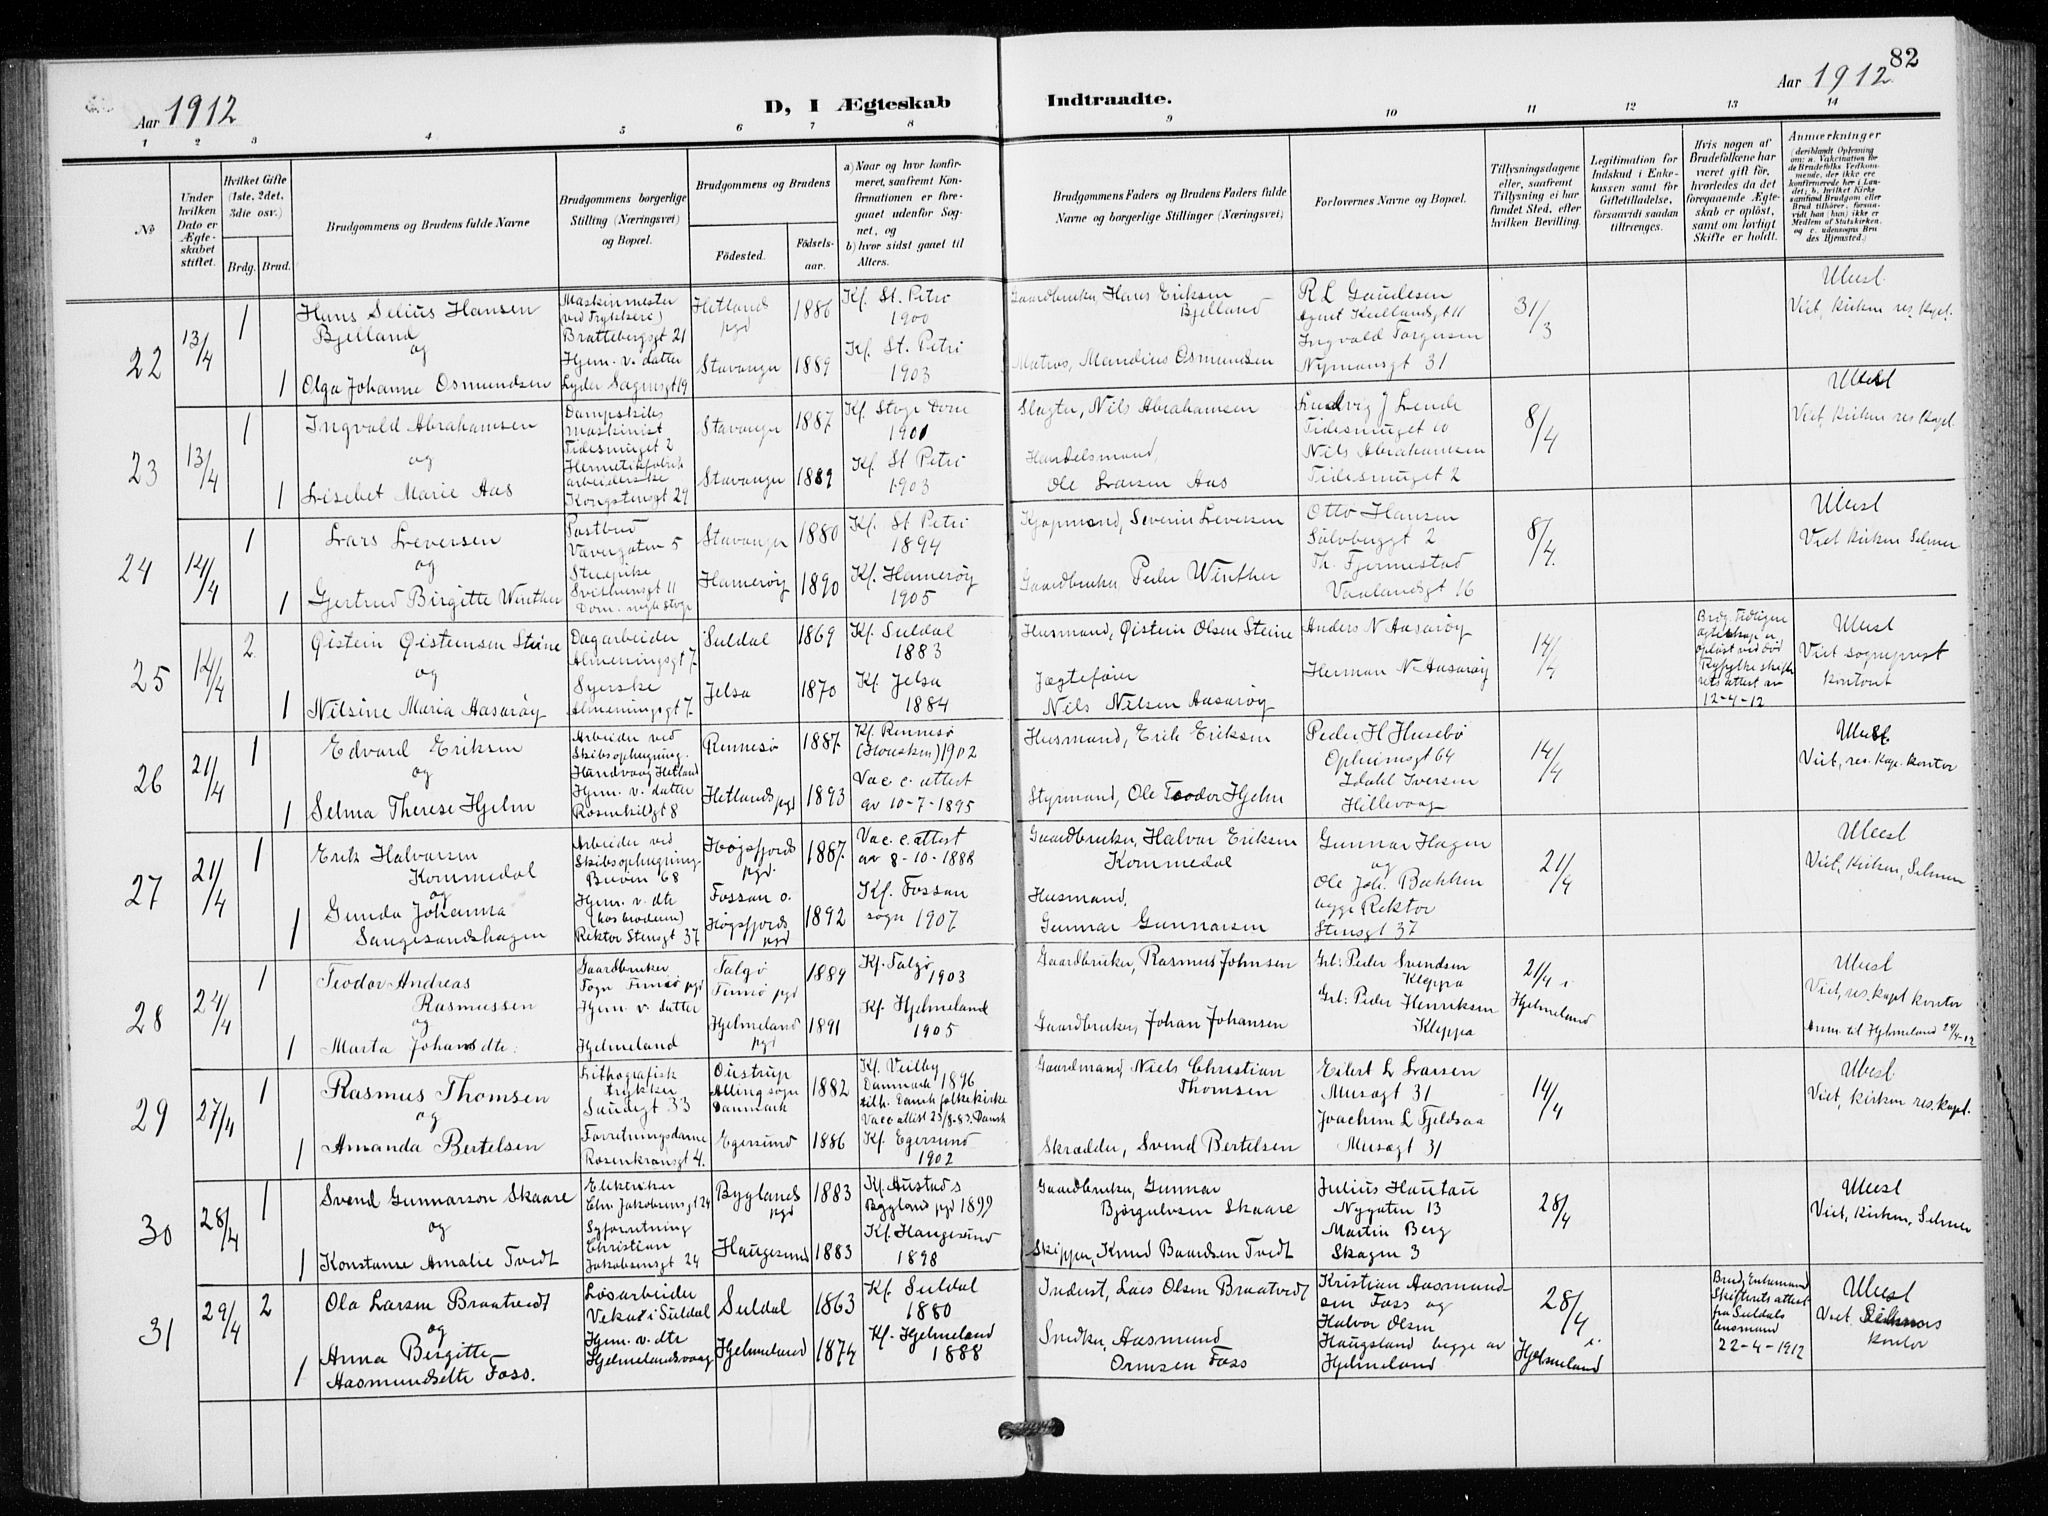 82
Aar 1912
D, I Ægteskab
Indtraadte.
Aar 1912
1 2 3 4 5 6 7 8 9 10 11 12 13 14
No
Under
hvilken
Dato er
Ægte-
skabet
stiftet.
Hvilket Gifte
(1ste, 2det,
3die osv.)
Brdg. Brud.
Brudgommens og Brudens fulde Navne
Brudgommens borgerlige
Stilling (Næringsvei)
og Bopæl.
Brudgommens og Brudens
Födested.
Födsels-
aar.
a) Naar og hvor konfir-
meret, saafremt Kon-
firmationen er fore-
gaaet udenfor Sog-
net, og
b) hvor sidst gaaet til
Alters.
Brudgommens Faders og Brudens Faders fulde
Navne og borgerlige Stillinger (Næringsvei)
Forlovernes Navne og Bopæl.
Tillysningsdagene
eller, saafremt
Tillysning ei har
fundet Sted, efter
hvilken Bevilling.
Legitimation for
Indskud i Enke-
kassen samt for
Giftetilladelse,
forsaavidt saadan
tiltrænges.
Hvis nogen af
Brudefolkene har
været gift för,
hvorledes da det
foregaaende Ægte-
skab er oplöst,
samt om lovligt
Skifte er holdt.
Anmærkninger
(deriblandt Oplysning
om: a. Vakcination for
de Brudefolks Vedkom-
mende, der ikke ere
konfirmerede her i Lan-
det; b. hvilket Kirke-
samfund Brudgom eller
Brud tilhörer, forsaa-
vidt han (hun) ikke er
Medlem af Statskirken,
og c. udensogns Bru-
des Hjemsted.)
22
13/4
1
Hans Selius Hansen
Bjelland
og
1 Olga Johanne Osmundsen
Maskinmester
(ved Trykkeri)
Brattebergsgt 21
Hjem. v. datter
Lyder Sagensgt 19
Hetland
pgd
1886
Stavanger 1889
Kf. St. Petri
1900
Kf. St. Petri
1903
Gaardbruker, Hans Eriksen
Bjelland
Matros, Mandius Osmundsen
R L Gaudesen
Agnet Kiellandsgt 11
Ingvald Torgersen
Nymansgt 31
31/3
Ubesl.
Viet, kirken res. kapl.
23
13/4
1
Ingvald Abrahamsen
og
1 Lisebet Marie Aas
Dampskibs
maskinist
Tidesmuget 2
Hermetikfabrik
arbeiderske
Kongstensgt 29
Stavanger 1887
Stavanger 1889
Kf. Stvgr Dom
1901
Kf. St Petri
1903
Slagter, Nils Abrahamsen
Handelsmand,
Ole Larsen Aas
Ludvig J Lende
Tidesmuget 10
Nils Abrahamsen
Tidesmuget 2
8/4
Ubesl
Viet, kirken res kapl.
24
14/4
1
Lars Leversen
og
1 Gjertrud Birgitte Winther
Postbud
Vævergaten 5
Stuepike
Svithunsgt 11
Dom. mgh Stvgr
Stavanger 1880
Hamerøy 1890
Kf. St Petri
1894
Kf. Hamerøy
1905
Kjøpmand, Severin Leversen
Gaardbruker, Peder Winther
Otto Hansen
Sølvberggt 2
Th. Fjermestad
Vaalandsgt 16
8/4.
Ubesl
Viet kirken Selmer
25
14/4
2.
Øistein Øisteinsen Steine
og
1 Nilsine Maria Aasarøy
Dagarbeider
Almeningsgt 7.
Syerske
Almeningsgt 7.
Suldal 1869
Jelsa 1870
Kf. Suldal
1883
Kf. Jelsa
1884
Husmand, Øistein Olsen Steine
Jægtefører
Nils Nilsen Aasarøy
Anders N Aasarøy
Herman N. Aasarøy
14/4
Brdg. Tidligere
egteskap er
opløst ved død
Ryfylke skifte
rets attest av
12-4-12
Ubesl
Viet sogneprest
kontoret
26
21/4
1
Edvard Eriksen
og
1 Selma Therese Hjelm
Arbeider ved
Skibsophugning
Hundvaag Hetland
Hjem. v. datter
Rosenkildgt 8
Rennesø 1887.
Hetlands pgd 1893
Kf Rennesø
1902
Vac. c. attest
av 10-7-1895
Husmand, Erik Eriksen
Styrmand, Ole Teodor Hjelm
Peder H Husebø
Opheimsgt 64
Idahl Iversen
Hillevaag
14/4
Ubesl.
Viet, res. kap. kontor
27
21/4
1
Erik Halvorsen
Kommedal
og
Gunda Johanna
1 Saugesandshagen
Arbeider ved
Skibsophugning
Buøen 68
Hjem. v. dtr
(hos broderen)
Rektor Stensgt 37
Høgsfjords
pgd.
1887.
Fossan o.
Høgsfjords
pgd
1892
Vac c. attest
av 8-10-1888
Kf. Fossan
sogn 1907
Gaardbruker, Halvor Eriksen
Kommedal
Husmand,
Gunnar Gunnarsen
Gunnar Hagen
og
Ole Joh. Bakken
begge Rektor
Stensgt 37
21/4
Ubesl
Viet, kirken, Selmer
28
24/4
1
Teodor Andreas
Rasmussen
og
1 Marta Johansdtr.
Gaardbruker
Fogn Finnø pgd
Hjem. v. datter
Hjelmeland
Talgø
Finnø pgd
1889
Hjelmeland
pgd
1891
Kf. Talgø
1903
Kf. Hjelmeland
1905
Gaardbruker, Rasmus Johnsen
Gaardbruker, Johan Johansen
Grb: Peder Svendsen
Kleppa
Grb: Peder Henriksen
Kleppa
21/4 i
Hjelmeland
Ubesl
Viet, res. kapl kontor
Anm. til Hjelmeland 24/4-12
29
27/4
1
Rasmus Thomsen
og
1 Amanda Bertelsen
Lithografisk
trykker
Saudegt 33
Forretningsdame
Rosenkransgt 4.
Oustrup
Alling sogn
Danmark
1882
Egersund 1886
Kf. Veilby
Danmark 1896
tilh. Dansk folkekirke
Vacc attest 23/8-83. Dansk
Kf. Egersund
1902
Gaardmand, Niels Christian
Thomsen
Skrædder, Svend Bertelsen
Eilert L Larsen
Musegt 31
Joachim L Fjeldsaa
Musegt 31
14/4
Ubesl
Viet, kirken res. kapl.
30
28/4
1
Svend Gunnarson Skaare
og
1 Konstanse Amalie Tvedt
Elektriker
Chr. Jakobsensgt 24
Syforretning
Christian
Jakobsensgt 24
Byglands
pgd
1883
Haugesund 1883
Kf. Austads
Bygland pgd 1899
Kf. Haugesund
1898
Gaardbruker, Gunnar
Bjørgulvsen Skaare
Skipper, Knud Baardsen Tvedt
Julius Hautau
Nygaten 13
Martin Berg
Skagen 3
28/4
Ubesl
Viet, kirken, Selmer
31
29/4
2
Ola Larsen Braatveidt
og
Anna Birgitte
1 Aasmundsdtr Foss.
Løsarbeider
Veka i Suldal
Hjem. v. dtr
Hjelmelandsvaag
Suldal 1863
Hjelmeland 1874
Kf. Suldal
1880
Kf. Hjelmeland
1888
Inderst, Lars Olsen Braatvedt
Snedker, Aasmund
Ormsen Foss
Kristian Aasmund-
sen Foss og
Halvor Olsen
Haugsland begge av
Hjelmeland
28/4
i
Hjelmeland
Brudg. Enkemand
Skifterets attest
fra Suldals
lensmand
22-4-1912
Ubesl
Viet
kontor